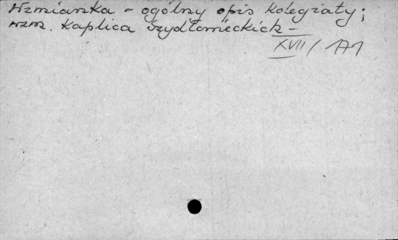 Wzmianka - ogólny opis kolegiaty;
wzm. kaplica Szydłowieckich -
XVII / 171